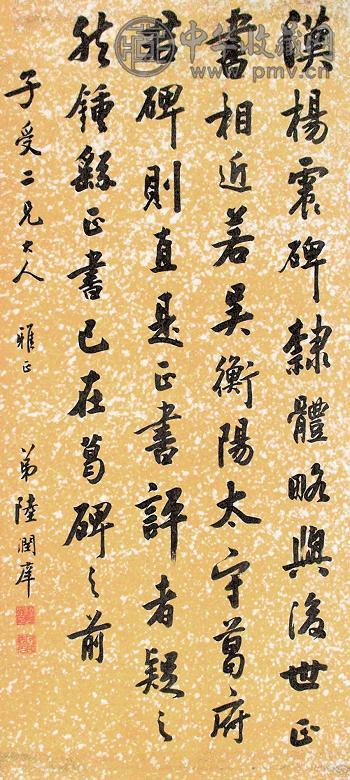 漢楊震碑隸體略與後世正
書相近若吴衡陽太守葛府
君碑則直是正書評者疑之
然鍾繇正書已在葛碑之前
子受二兄大人 雅正
弟陸潤庠
中华收藏网
www.pmv.cn